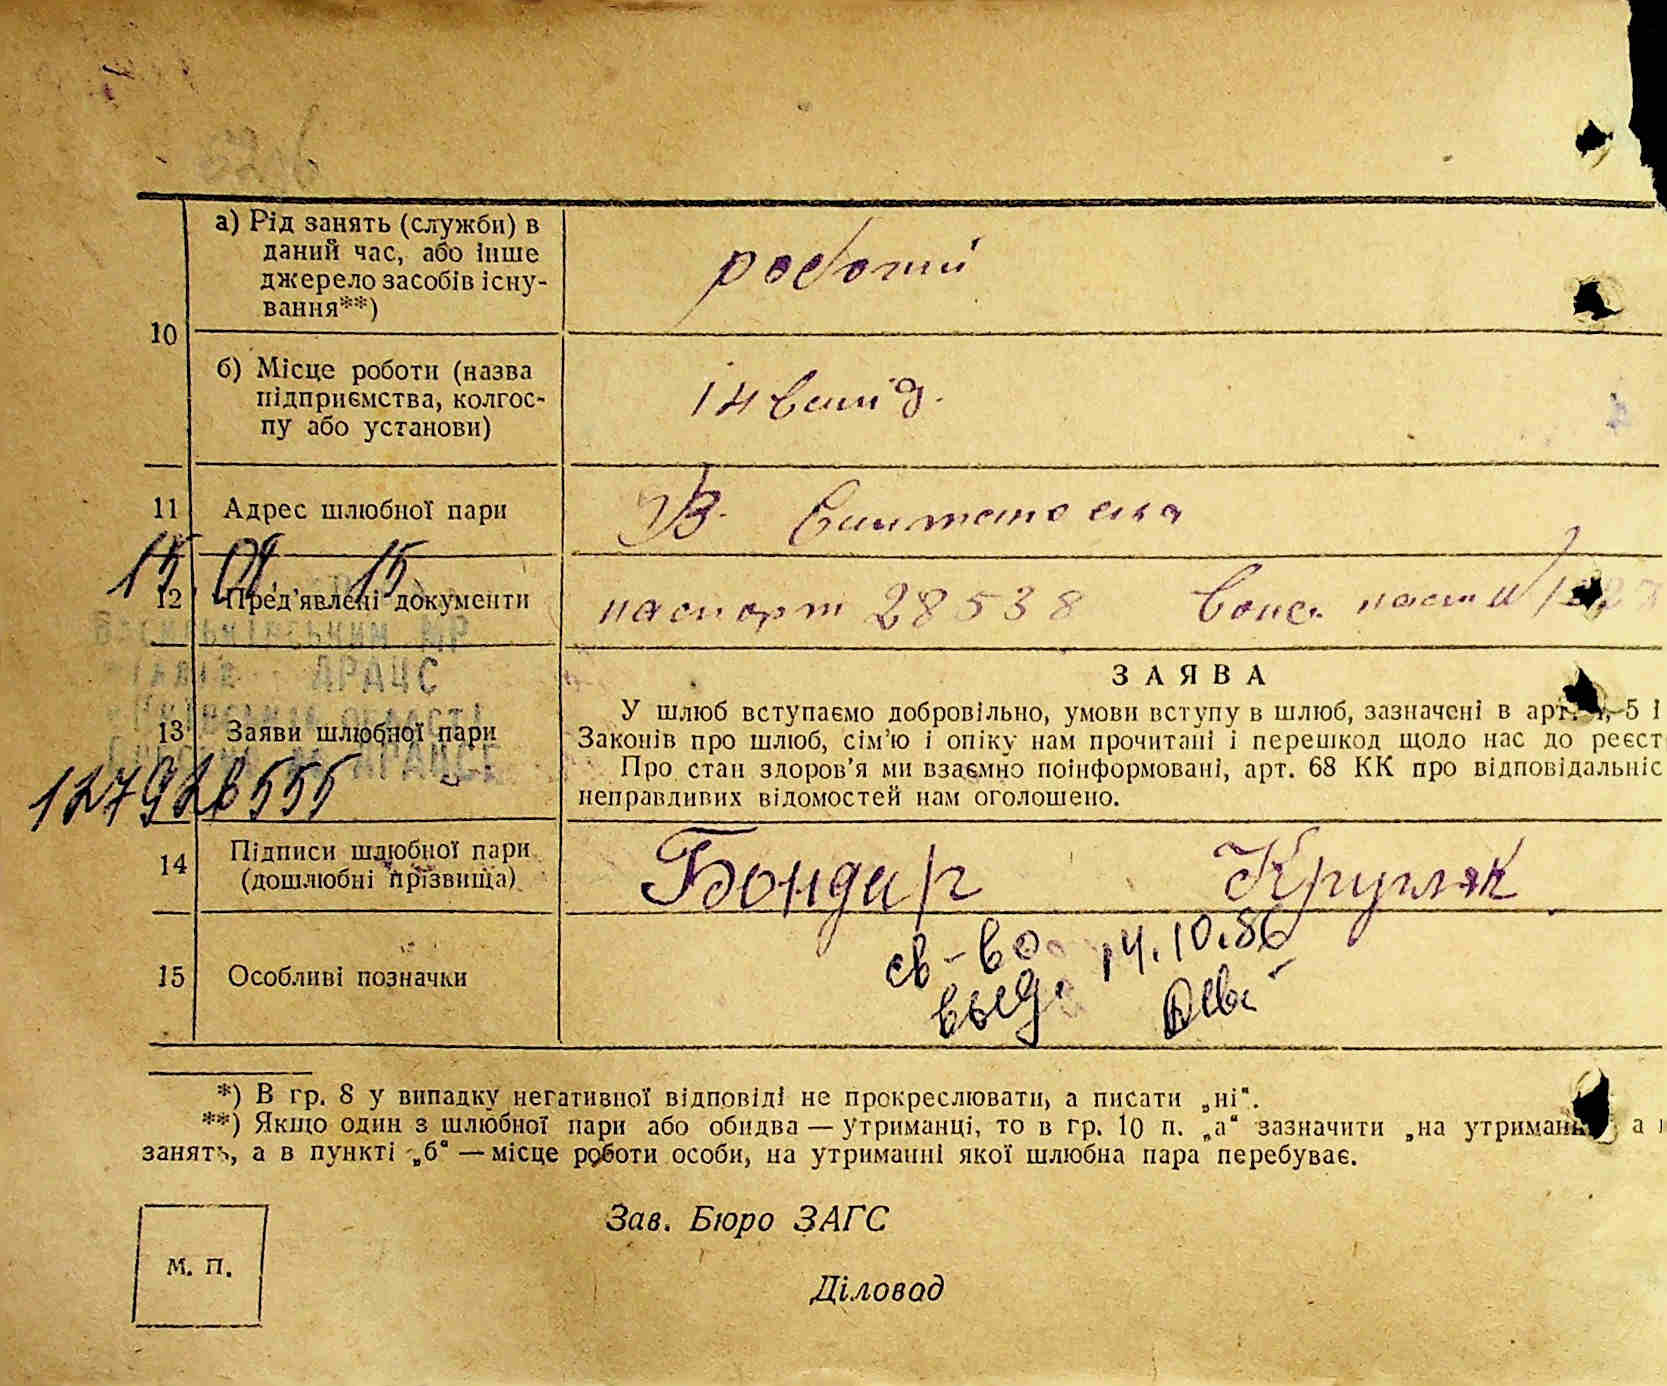 а) Рід занять (служби) в
даний час, або інше
джерело засобів існу-
вання**)
робочий
10
б) Місце роботи (назва
підприємства, колгос-
пу або установи)
інвалід.
11 Адрес шлюбної пари
15. 01 15
12 Пред'явлені документи
паспорт 28538
АРАЦС
ЗАЯВА
У шлюб вступаємо добровільно, умови вступу в шлюб, зазначені в арт. 5 і
Законів про шлюб, сім'ю і опіку нам прочитані і перешкод щодо нас до реєст
Про стан здоров'я ми взаємно поінформовані, арт. 68 КК про відповідальніс
неправдивих відомостей нам оголошено.
13 Заяви шлюбної пари
14 Підписи шлюбної пари
(дошлюбні прізвища)
Бондар Кругляк
15 Особливі позначки
св-во 14.10.86
*) В гр. 8 у випадку негативної відповіді не прокреслювати, а писати „ні“.
**) Якщо один з шлюбної пари або обидва — утриманці, то в гр. 10 п. „а“ зазначити „на утриман а
занять, а в пункті „б“ — місце роботи особи, на утриманні якої шлюбна пара перебуває.
Зав. Бюро ЗАГС
М. П.
Діловод